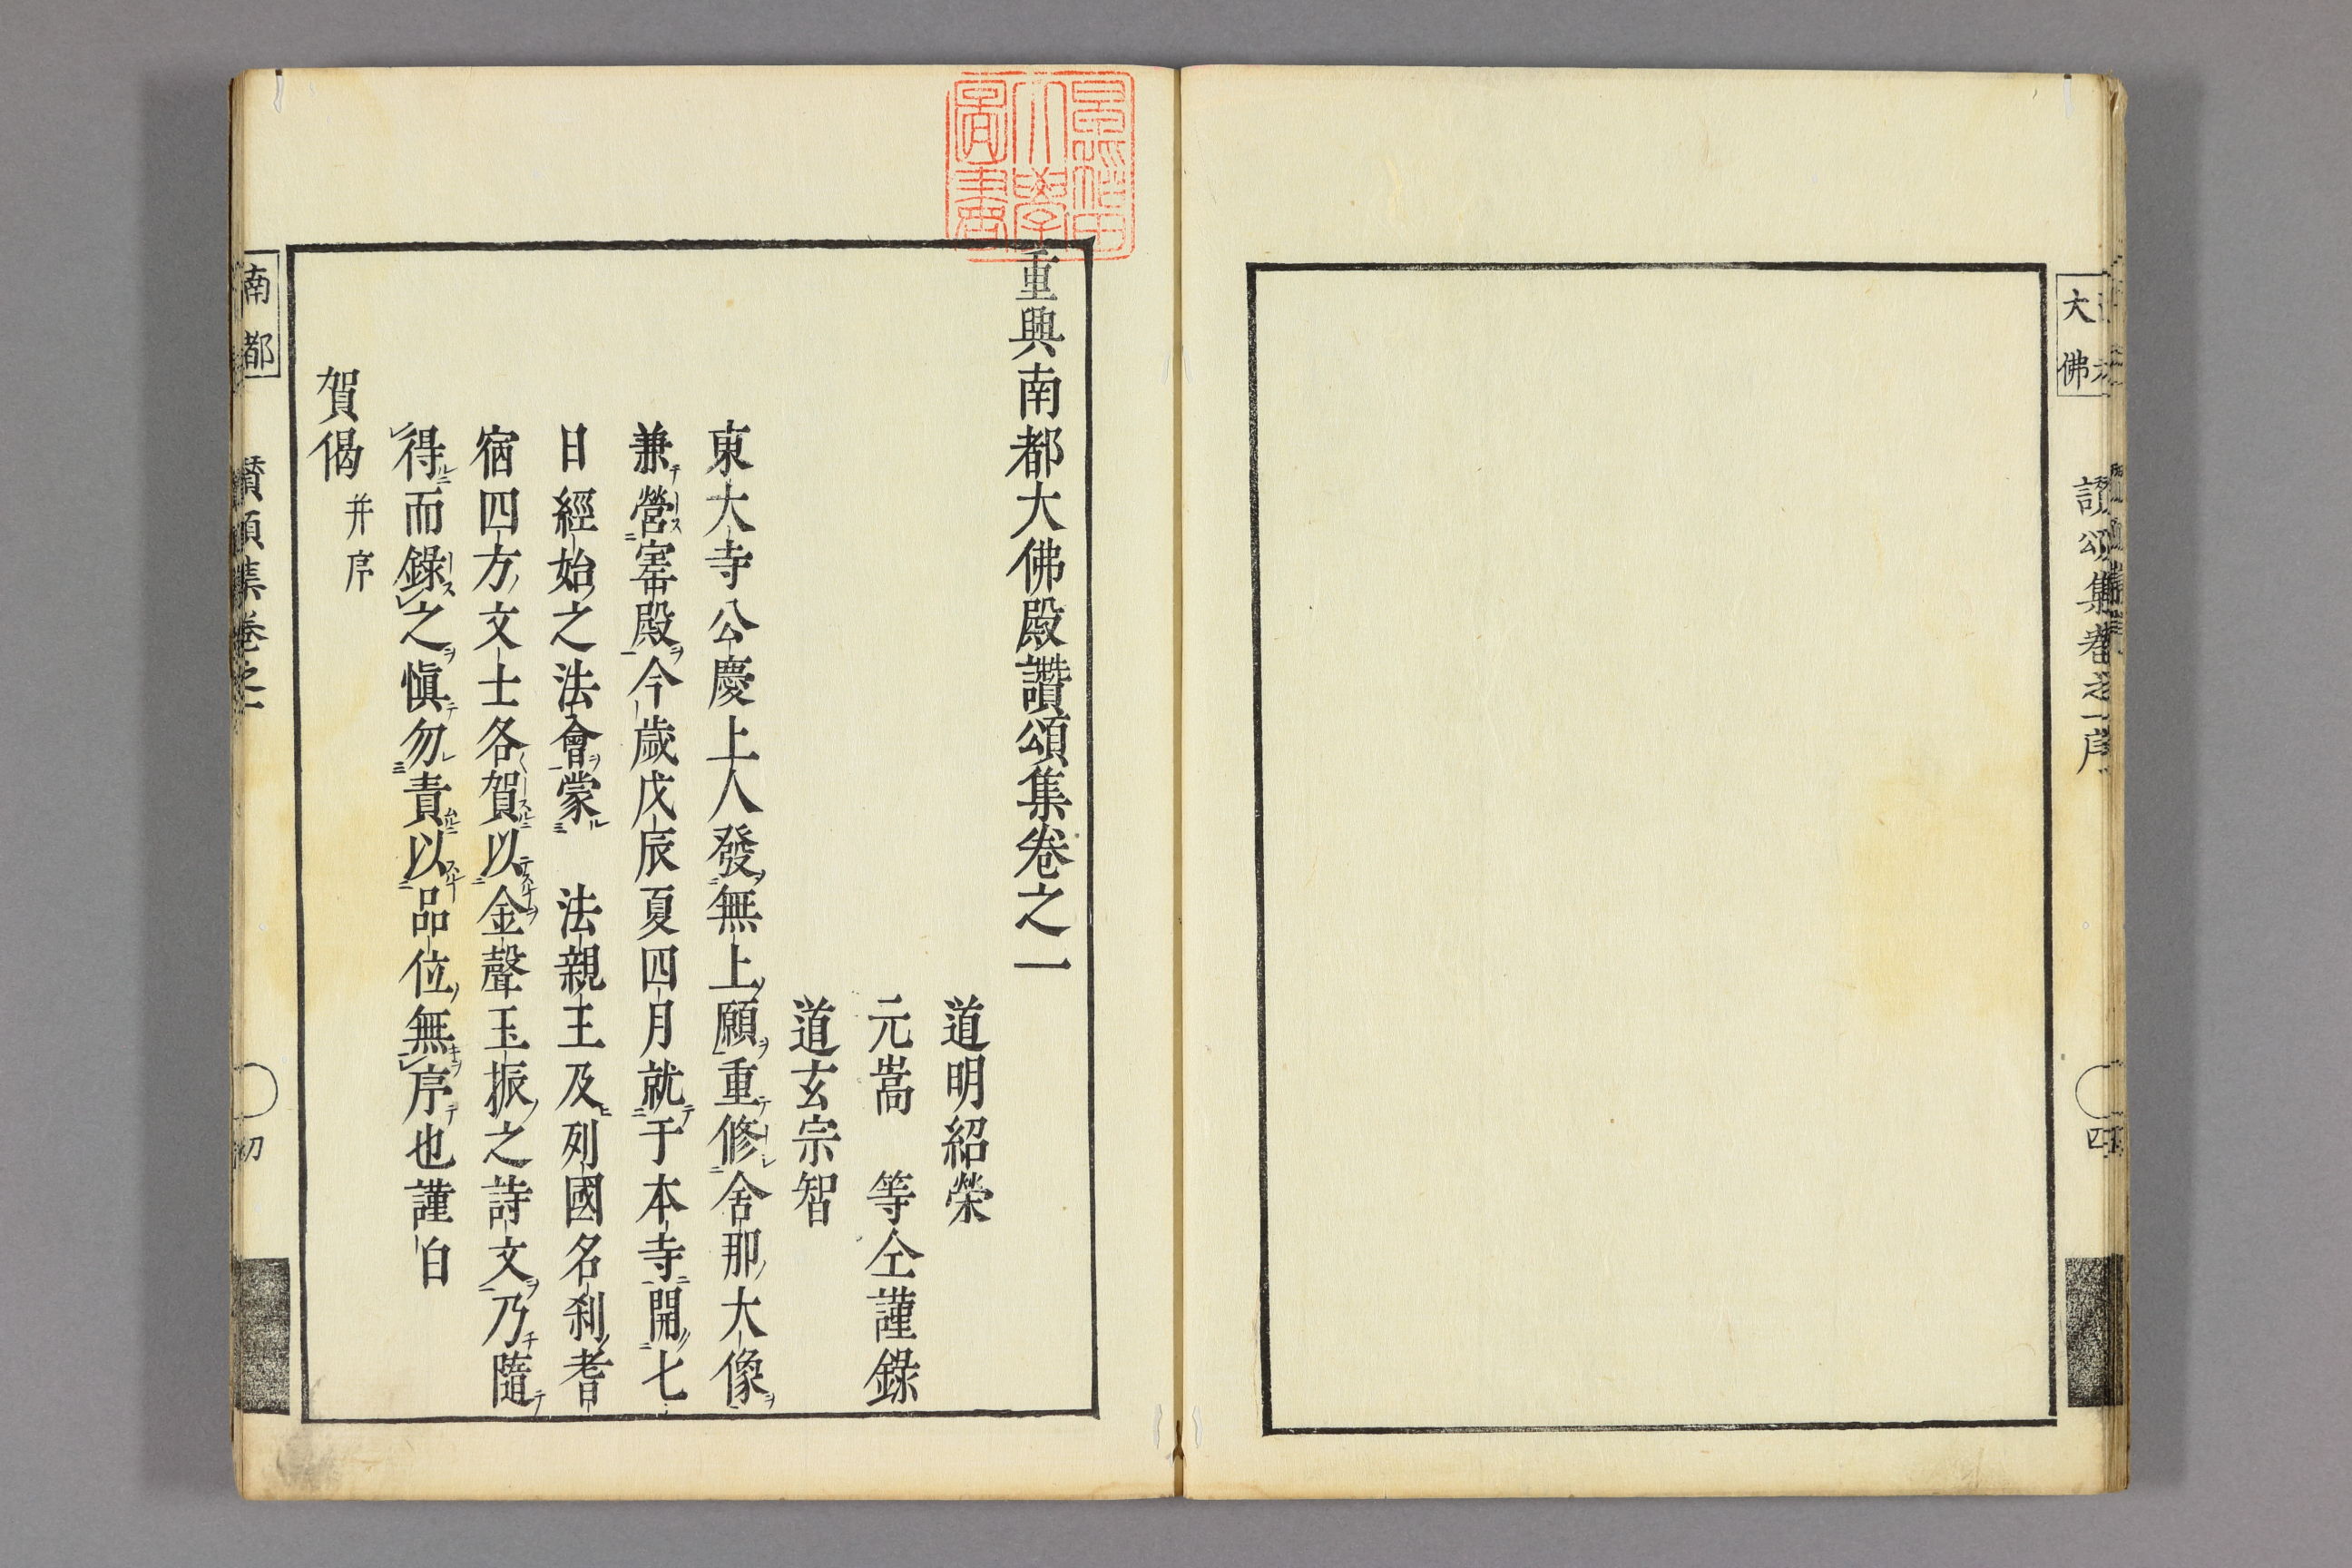 大佛
讃頌集卷之一序
四
重興南都大佛殿讚頌集卷之一
道明紹榮
元嵩　等仝謹錄
道玄宗智
東大寺公慶上人發無上願重修舍那大像
兼營寧殿今歲戊辰夏四月就于本寺開七
日經始之法會蒙　法親王及列國名刹耆
宿四方文士各賀以金聲玉振之詩文乃隨
得而錄之愼勿責以品位無序也謹白
賀偈
并序
南都
讃頌集卷之一
初